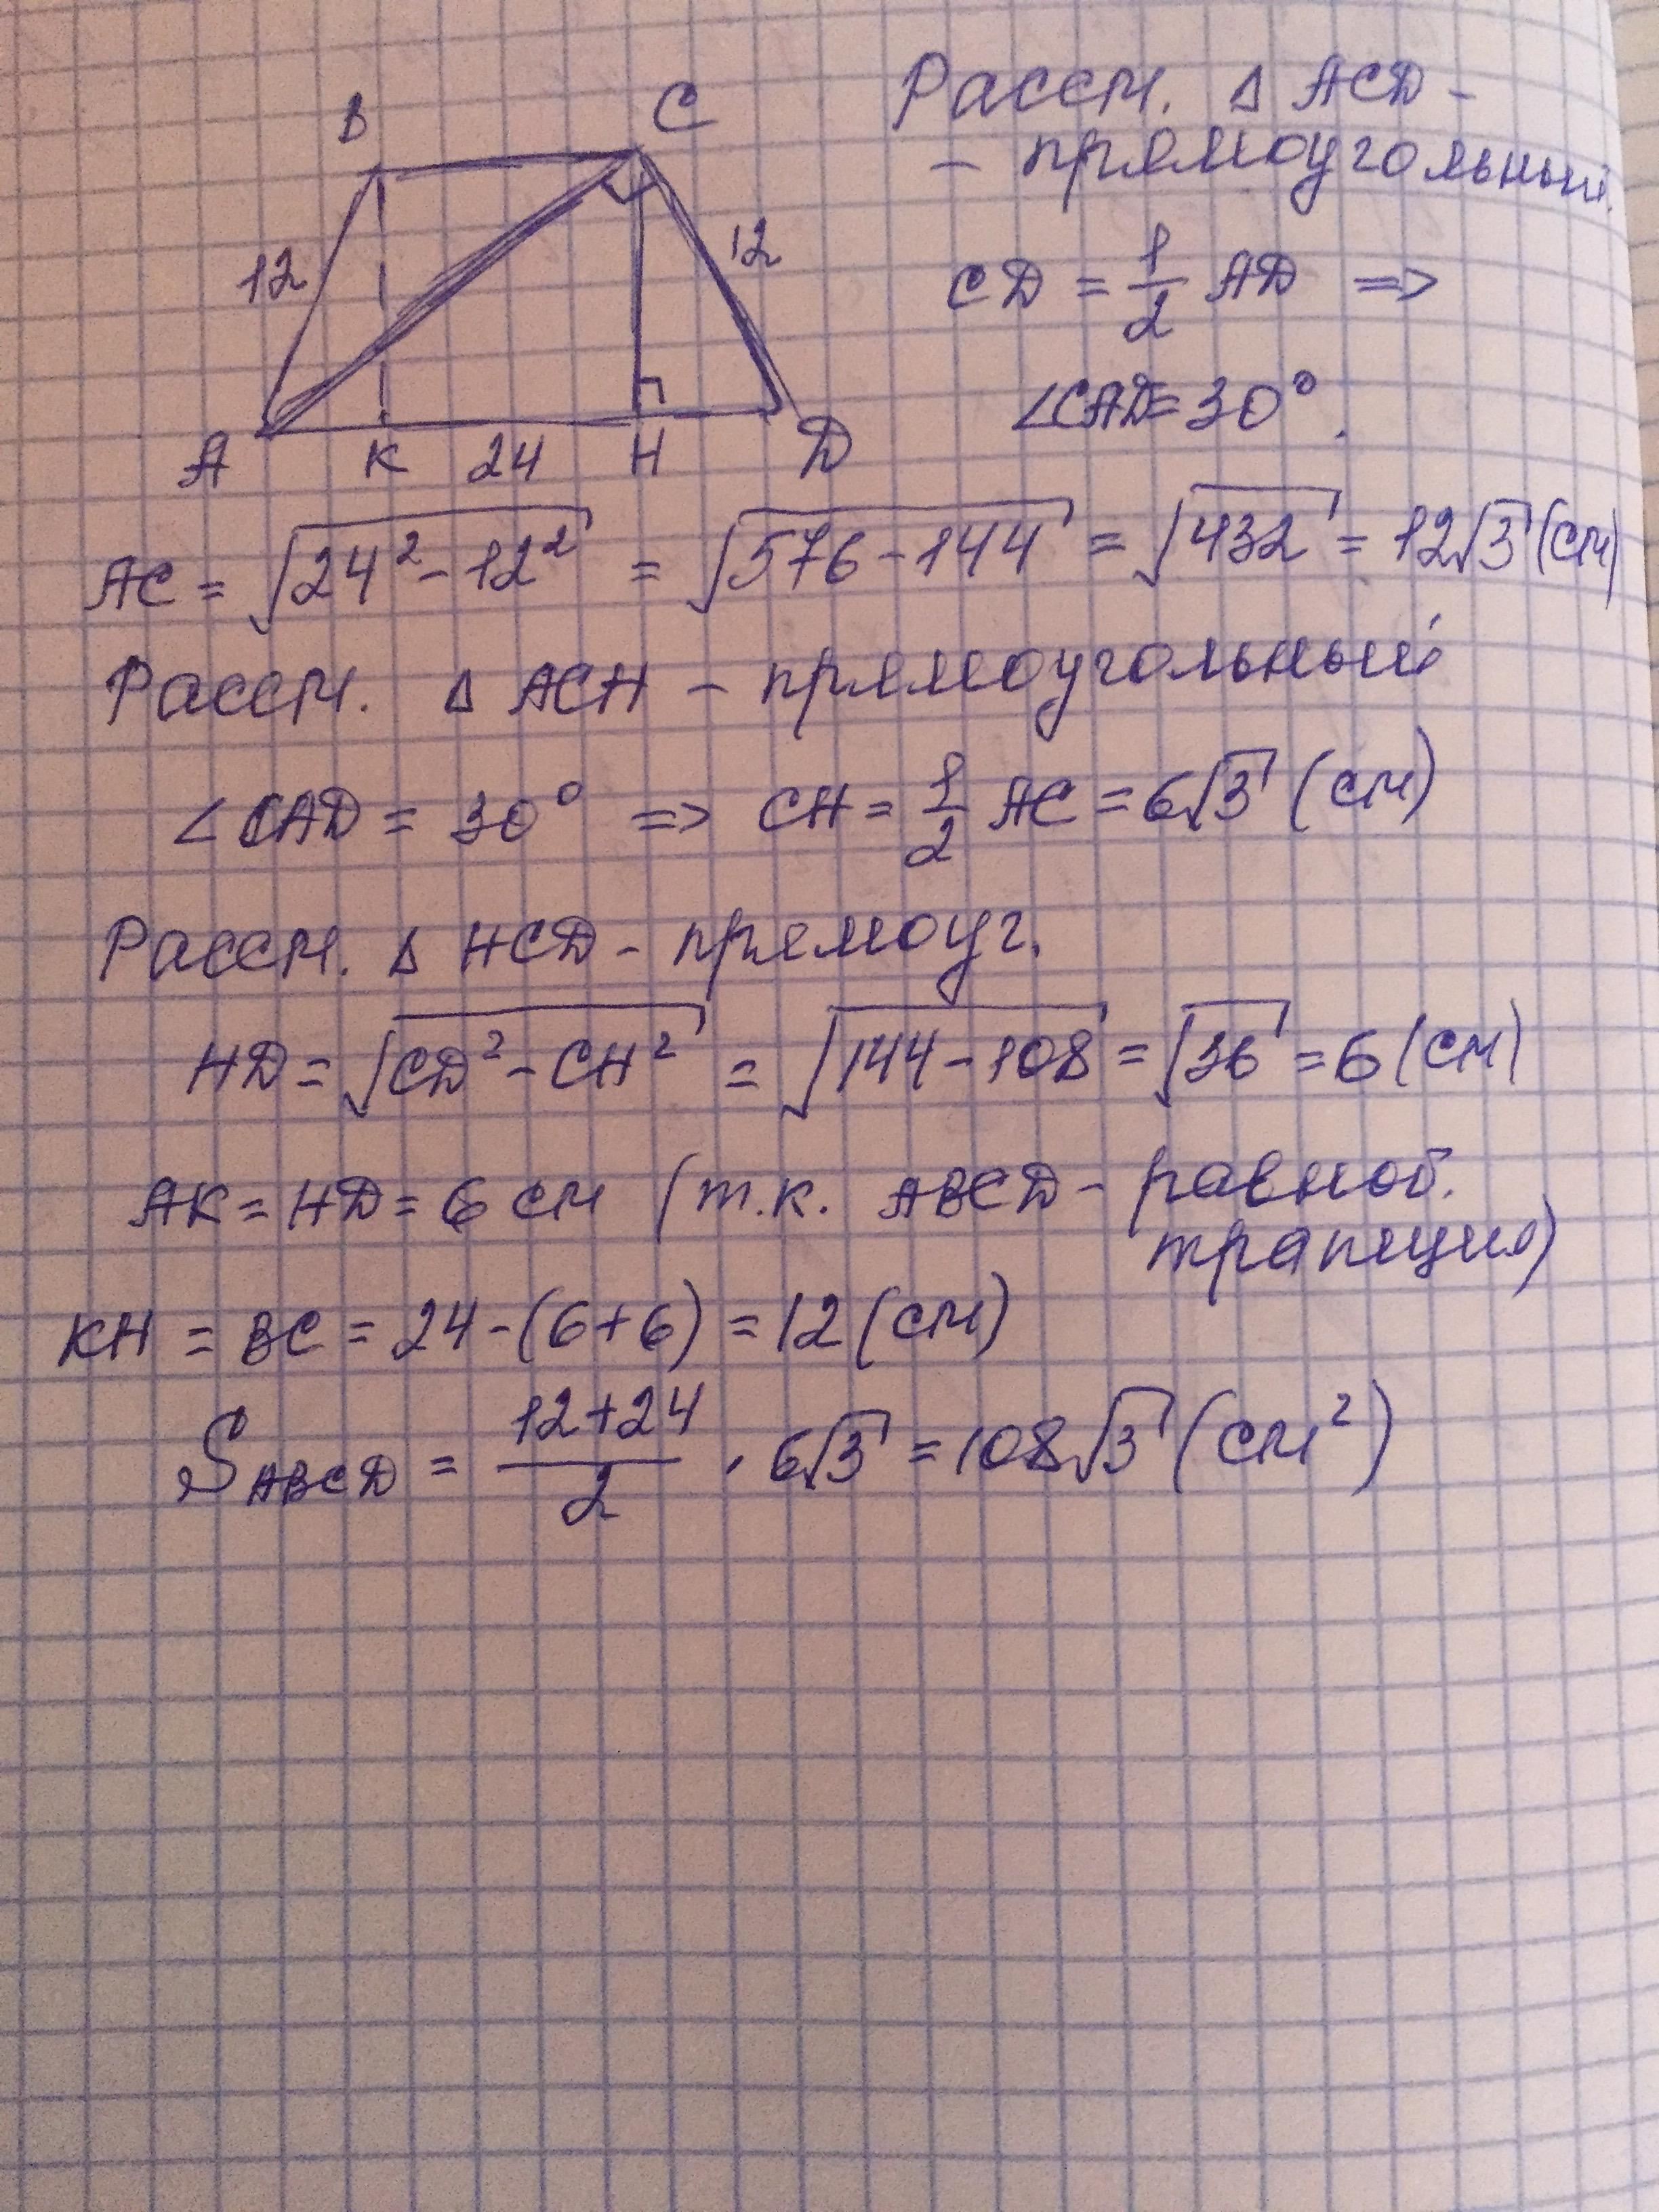 B C
12 12
A K 24 H D
Рассм. Δ ACD -
- прямоугольный.
CD = 1/2 AD =>
∠CAD = 30°.
AC = √(24² - 12²) = √(576 - 144) = √432 = 12√3 (см)
Рассм. Δ ACH - прямоугольный
∠CAD = 30° => CH = 1/2 AC = 6√3 (см)
Рассм. Δ HCD - прямоуг.
HD = √(CD² - CH²) = √(144 - 108) = √36 = 6 (см)
AK = HD = 6 см (т.к. ABCD - равноб.
трапеция)
KH = BC = 24 - (6+6) = 12 (см)
S ABCD = (12+24)/2 · 6√3 = 108√3 (см²)